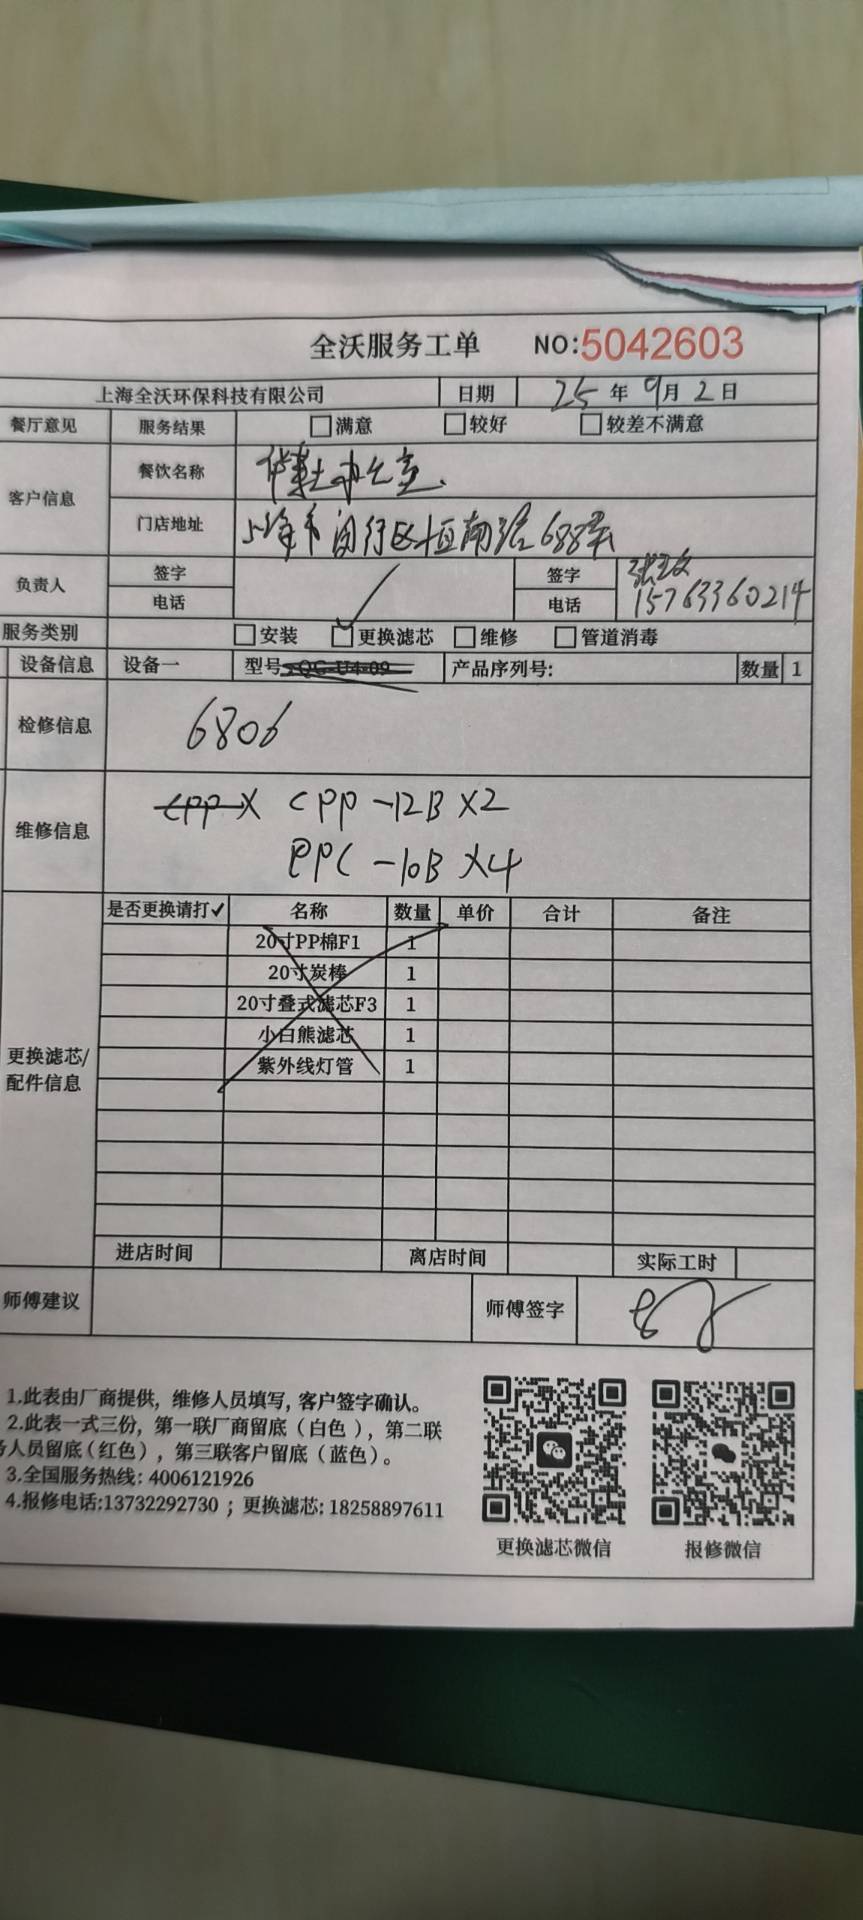 全沃服务工单 NO:5042603
上海全沃环保科技有限公司 日期 25年9月2日
餐厅意见 服务结果 满意 较好 较差不满意
客户信息 餐饮名称 华莱士办公室
门店地址 上海市闵行区恒南路688弄
负责人 签字 签字
电话 电话 15763360214
服务类别 安装 更换滤芯 维修 管道消毒
设备信息 设备一 型号:QG-U4-09 产品序列号: 数量 1
检修信息 6806
维修信息 CPP-X CPP-12B X2
PPC-10B X4
是否更换请打✓ 名称 数量 单价 合计 备注
20寸PP棉F1 1
20寸炭棒 1
20寸叠式滤芯F3 1
小白熊滤芯 1
更换滤芯/配件信息 紫外线灯管 1
进店时间 离店时间 实际工时
师傅建议 师傅签字
1.此表由厂商提供, 维修人员填写, 客户签字确认。
2.此表一式三份, 第一联厂商留底(白色), 第二联
务人员留底(红色), 第三联客户留底(蓝色)。
3.全国服务热线: 4006121926
4.报修电话:13732292730 ; 更换滤芯: 18258897611
更换滤芯微信 报修微信